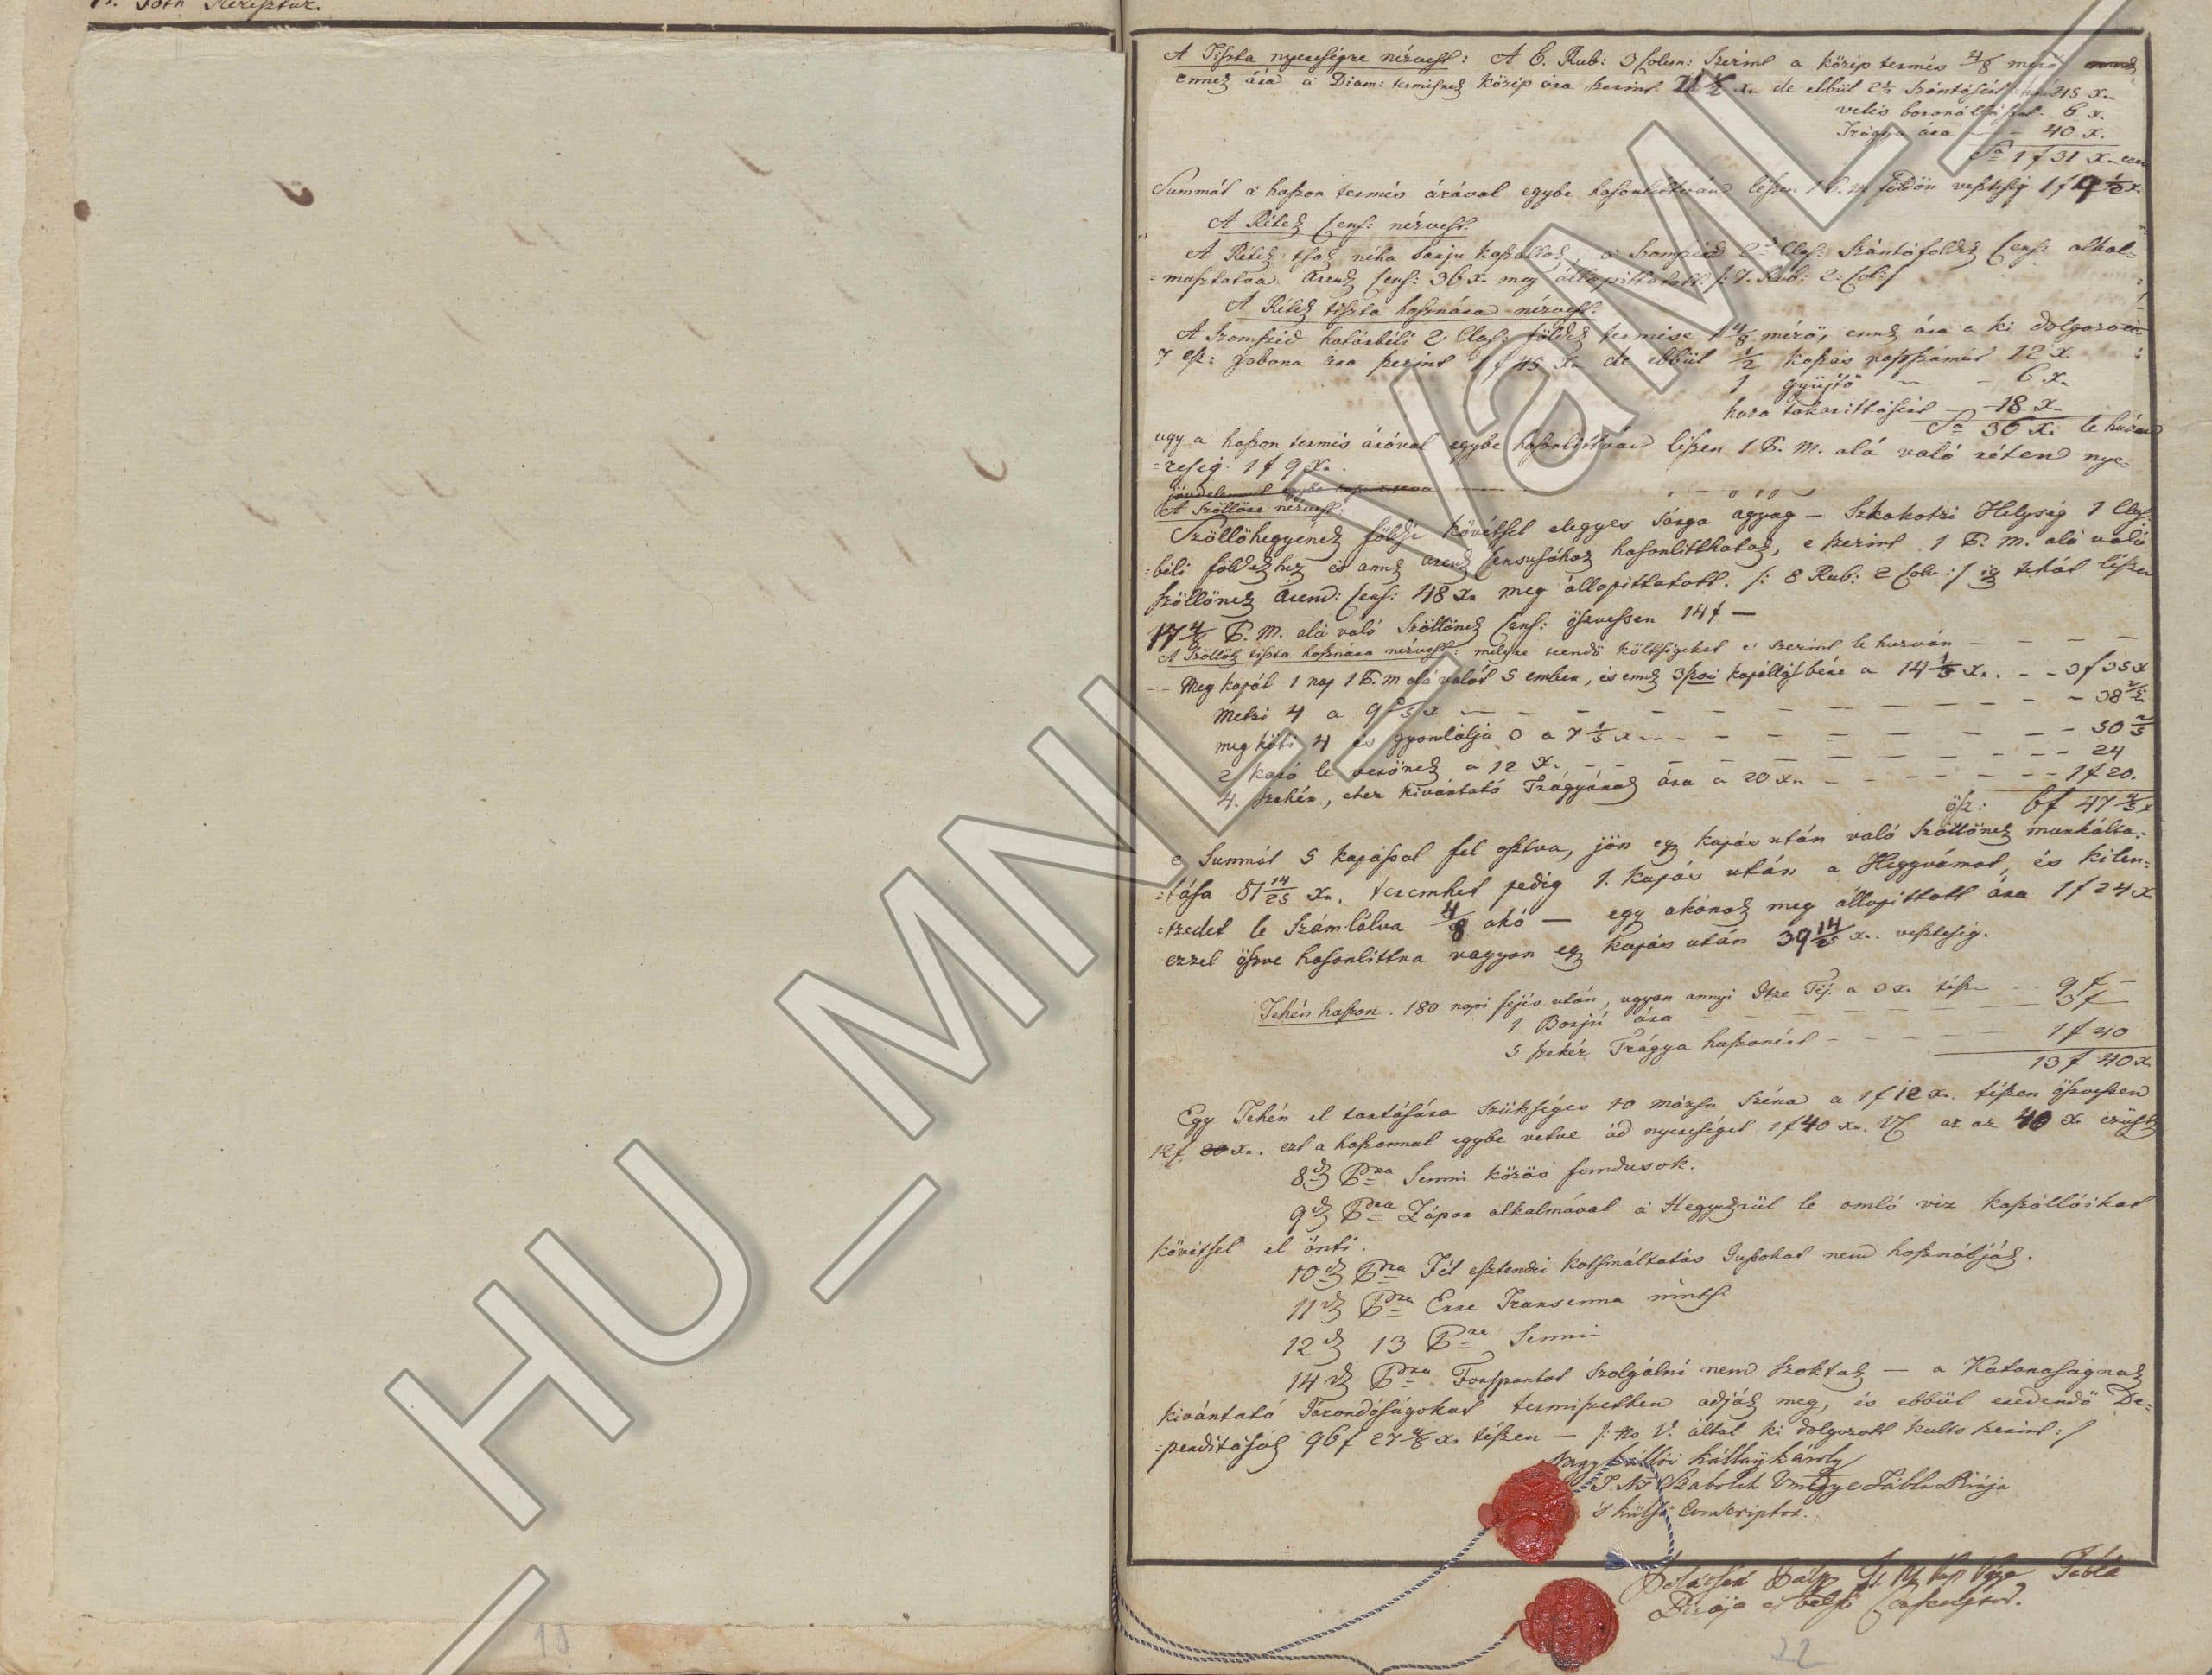 Tóth Keresztur.
A Tiszta nyereségre nézvest: A 6. Rub: 3 Colum: Szerint a közép termés 4/8 mérő
ennek ára a Dicom: termésnek közép ára szerint 21 1/2 xr de ebbül 2 1/2 Szántásért 45 xr
vetés boronálással 6 x.
Trágya ára — 40 x.
Sa 1 f 31 xr
Summát a haszon termés árával egybe hasonlitván lészen 1 P. M. földön veszteség 1 f 9 1/2 x.
A Rétek Cens: nézvest.
A Rétek tsak néha sarju kaszállok, a Szomszéd 2 Clas: Szántóföldek Cens: alkal=
=maztatva Arend Cens: 36 xr meg állapittatott /: 7. Rub: 2: Col: /
A Rétek tiszta hasznára nézvest.
A Szomszéd határbéli 2 Clas: földek termése 1 4/8 mérő, ennek ára a ki dolgozott
7 esz: gabona ára szerint 1 f 45 xr de ebbül 1/2 kaszás napszámát 12 x.
1 gyüjtő — 6 xr
haza takarittásért — 18 x.
Sa 36 xr le huzván
ugy a haszon termés árával egybe hasonlittván lészen 1 P. M. alá való réten nye=
=reség 1 f 9 xr.
A Szöllőre nézvest:
Szöllőhegyének földje kövétsel elegyes sárga agyag — Szkakotzi Helység 1 Clas:
:béli földekhez és annak arend Censusához hasonlitthatok, e szerint 1 P. M. alá való
szöllőnek Árend: Cens: 48 xr meg állapittatott. /: 8 Rub: 2 Col: / igy tehát lészen
17 4/8 P. M. alá való Szöllőnek Cens: öszvessen 14 f —
A Szöllők tiszta hasznára nézvest: mellyre teendő költségeket e szerint le huzván —
Meg kapál 1 nap 1 P. M alá valót 5 ember, és ennek 3szori kapállás bére a 14 1/3 xr. — 3 f 35 x
Metzi 4 a 9 3/5 x — 38 2/5
meg köti 4 és gyomlálja 3 a 7 1/5 xr — 50 2/5
2 karó le verőnek a 12 xr — 24
4. szekér, ehez kivántató Trágyának ára a 20 xr — 1 f 20.
ösz: 6 f 47 4/5 x
e Summát 5 kapással fel osztva, jön egy kapás után való Szöllőnek munkálta=
=tása 81 14/25 xr. teremhet pedig 1. kapás után a Hegyvámot, és kilen=
=tzedet le Számlálva 4/8 akó — egy akónak meg állapittott ára 1 f 24 x
ezzel öszve hasonlittva vagyon egy kapás után 39 14/25 xr veszteség.
Tehén haszon. 180 napi fejés után, ugyan annyi Itze Téj a 3 xr tészen — 9 f —
1 Borjú ára — 3 f —
5 szekér Trágya haszonért — 1 f 40
13 f 40 x
Egy Tehén el tartására Szükséges 10 mázsa Széna a 1 f 12 xr. tészen öszvessen
12 f xr. ezt a haszonnal egybe vetve ád nyereséget 1 f 40 xr. az az 40 x. ezüst
8ik Pra Semmi közös fundusok.
9ik Pra Zápor alkalmával a Hegyekrül le omló viz kaszállóikat
kövétsel el önti.
10ik Pra Fél esztendei kotsmáltatás Jussokat nem használják.
11ik Pra Erre Transenna nints
12ik 13 Pra Semmi
14ik Pra Forspontot szolgálni nem szoktak — a Katonaságnak
kivántató Porondóságokat természetben adják meg, és ebbül eredendő De=
=perditájok 96 f 27 4/8 xr tészen — /: No V. által ki dolgozott kults szerint: /
Nagy Kállói Kállay Károly
T. Ns Szabolch Vmegye Tábla Birája
's külső Conscriptor.
Tábla
Birája és belső Conscriptor.
18
22
HU_MNL_VaML_